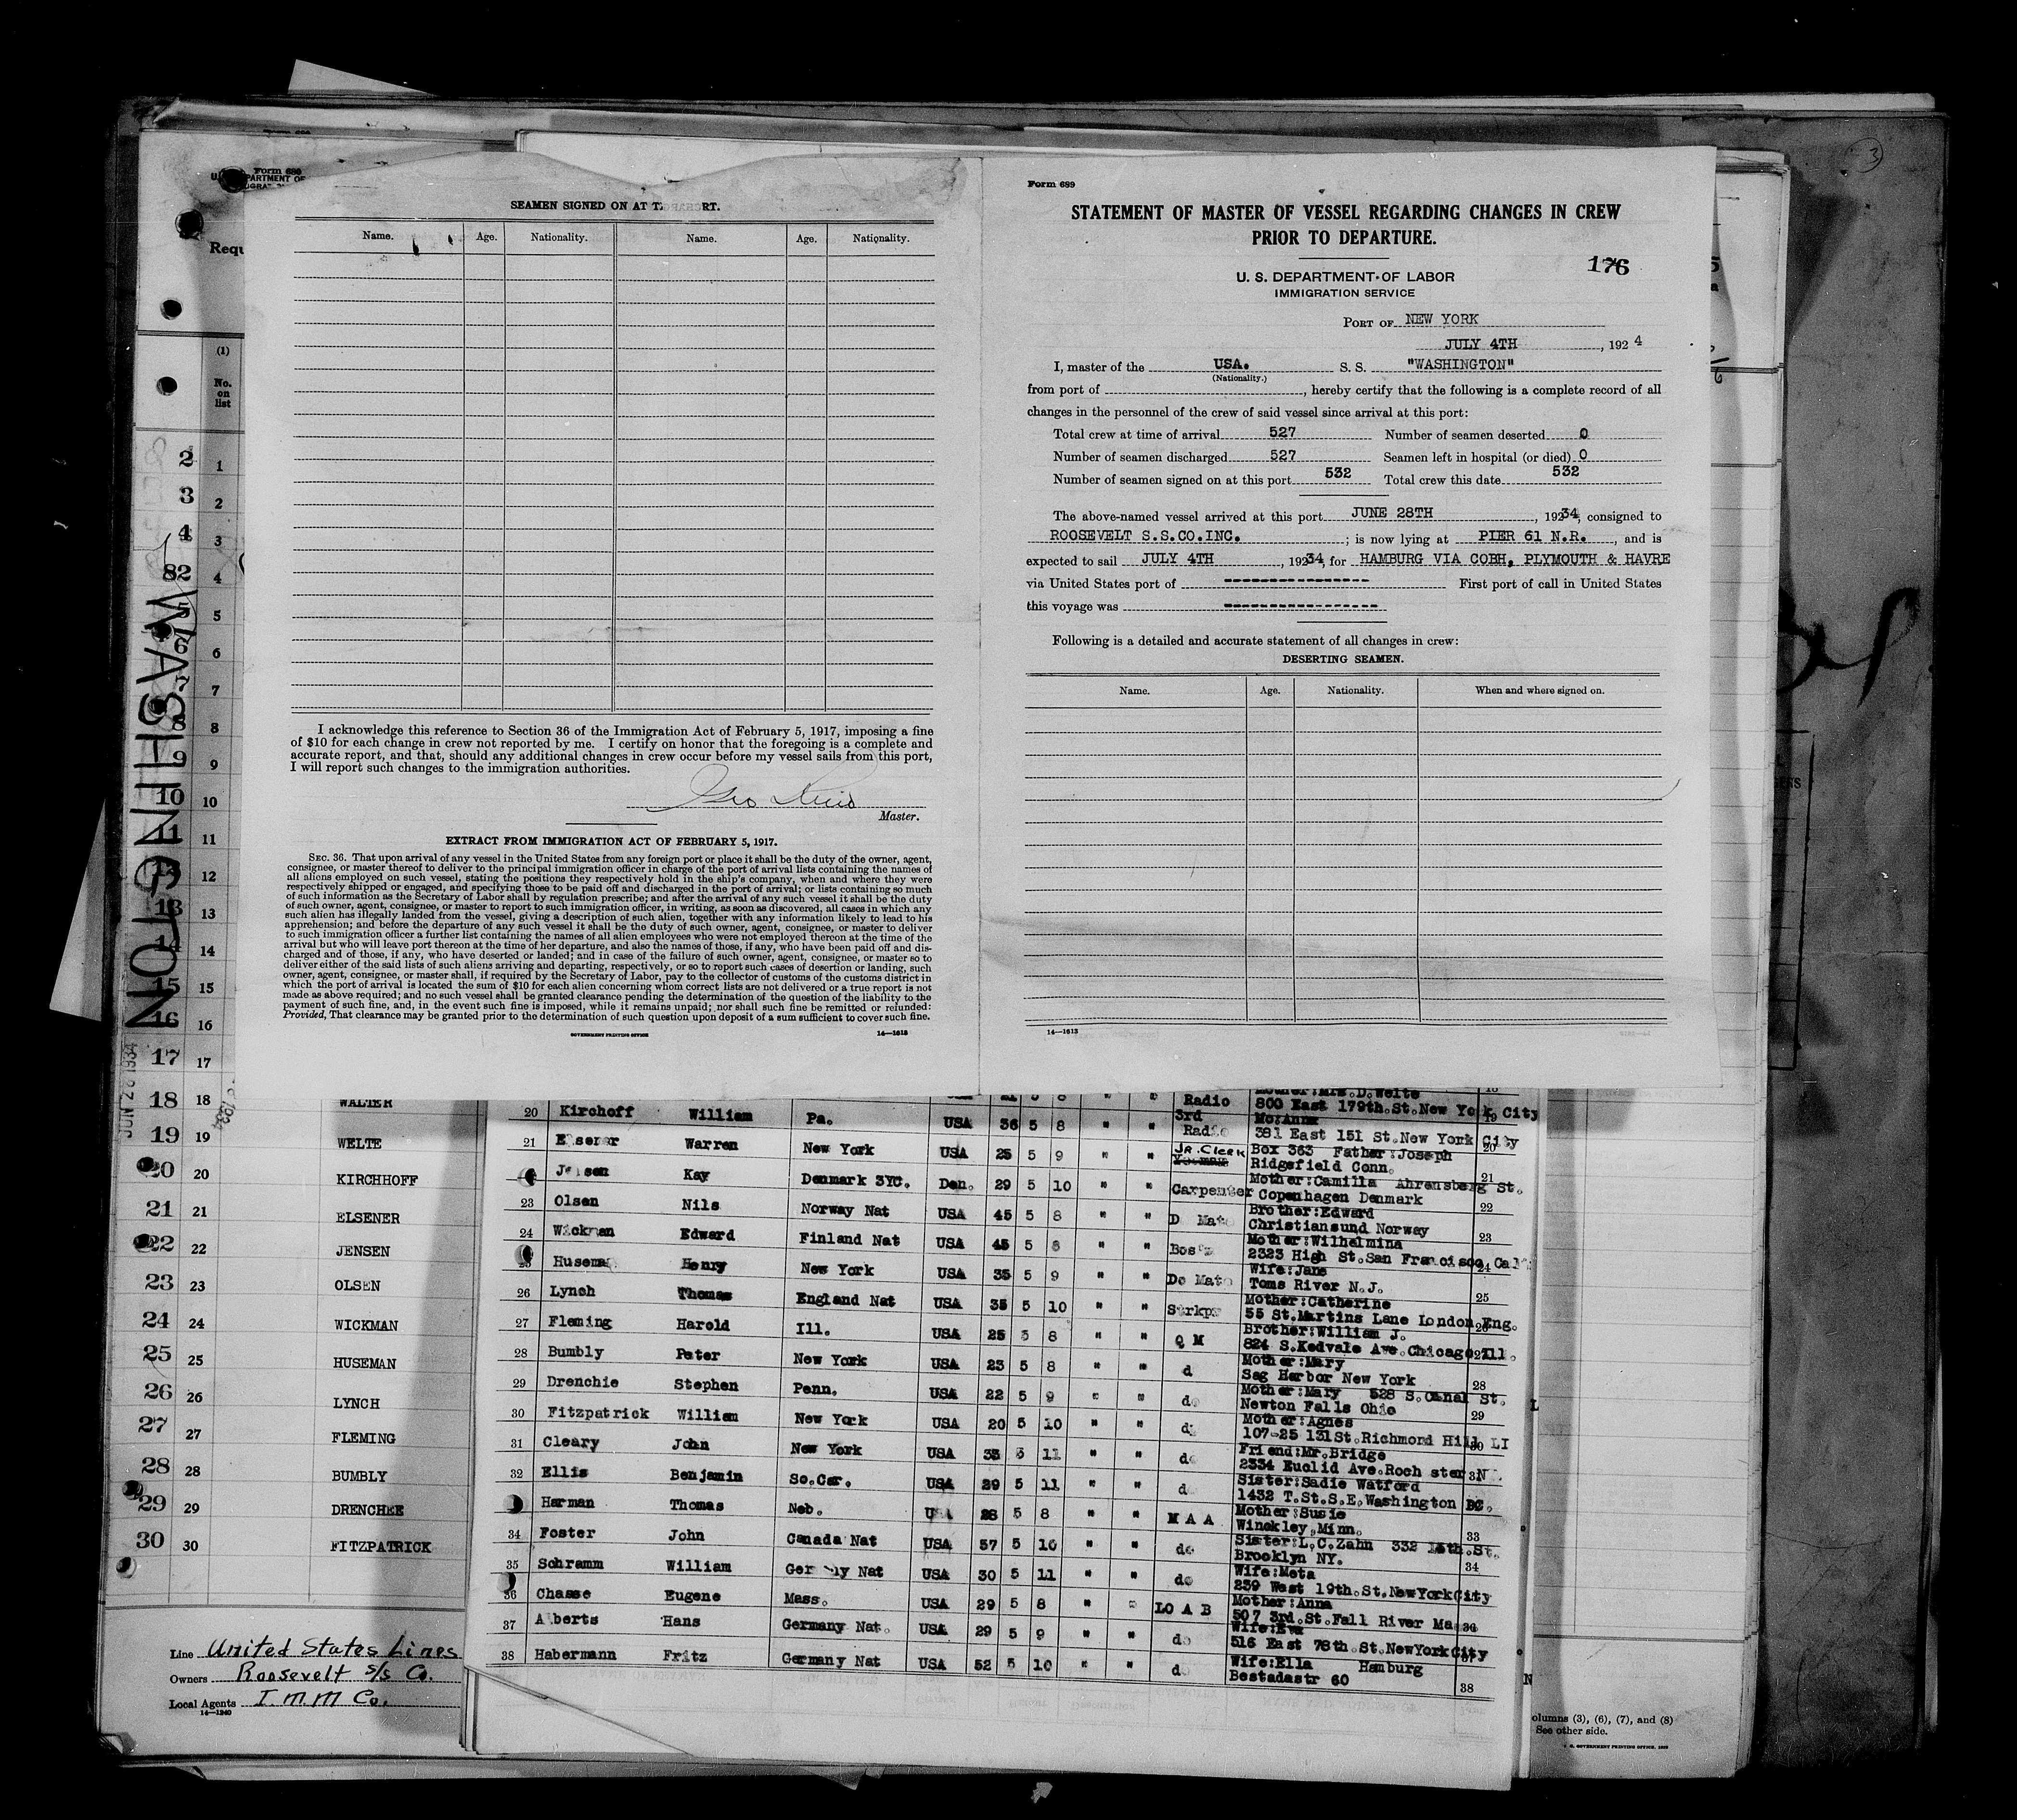 3
Form 689
SEAMEN SIGNED ON AT
RT.
Name. Age. Nationality. Name. Age. Nationality.
I acknowledge this reference to Section 36 of the Immigration Act of February 5, 1917, imposing a fine
of $10 for each change in crew not reported by me. I certify on honor that the foregoing is a complete and
accurate report, and that, should any additional changes in crew occur before my vessel sails from this port,
I will report such changes to the immigration authorities.
Master.
EXTRACT FROM IMMIGRATION ACT OF FEBRUARY 5, 1917.
SEC. 36. That upon arrival of any vessel in the United States from any foreign port or place it shall be the duty of the owner, agent,
consignee, or master thereof to deliver to the principal immigration officer in charge of the port of arrival lists containing the names of
all aliens employed on such vessel, stating the positions they respectively hold in the ship's company, when and where they were
respectively shipped or engaged, and specifying those to be paid off and discharged in the port of arrival; or lists containing so much
of such information as the Secretary of Labor shall by regulation prescribe; and after the arrival of any such vessel it shall be the duty
of such owner, agent, consignee, or master to report to such immigration officer, in writing, as soon as discovered, all cases in which any
such alien has illegally landed from the vessel, giving a description of such alien, together with any information likely to lead to his
apprehension; and before the departure of any such vessel it shall be the duty of such owner, agent, consignee, or master to deliver
to such immigration officer a further list containing the names of all alien employees who were not employed thereon at the time of the
arrival but who will leave port thereon at the time of her departure, and also the names of those, if any, who have been paid off and dis-
charged and of those, if any, who have deserted or landed; and in case of the failure of such owner, agent, consignee, or master so to
deliver either of the said lists of such aliens arriving and departing, respectively, or so to report such cases of desertion or landing, such
owner, agent, consignee, or master shall, if required by the Secretary of Labor, pay to the collector of customs of the customs district in
which the port of arrival is located the sum of $10 for each alien concerning whom correct lists are not delivered or a true report is not
made as above required; and no such vessel shall be granted clearance pending the determination of the question of the liability to the
payment of such fine, and, in the event such fine is imposed, while it remains unpaid; nor shall such fine be remitted or refunded:
Provided, That clearance may be granted prior to the determination of such question upon deposit of a sum sufficient to cover such fine.
GOVERNMENT PRINTING OFFICE 14—1613
Form 689
STATEMENT OF MASTER OF VESSEL REGARDING CHANGES IN CREW
PRIOR TO DEPARTURE.
176
U. S. DEPARTMENT OF LABOR
IMMIGRATION SERVICE
PORT OF NEW YORK
JULY 4TH, 1924
I, master of the USA. S. S. "WASHINGTON"
(Nationality.)
from port of , hereby certify that the following is a complete record of all
changes in the personnel of the crew of said vessel since arrival at this port:
Total crew at time of arrival 527 Number of seamen deserted 0
Number of seamen discharged 527 Seamen left in hospital (or died) 0
Number of seamen signed on at this port 532 Total crew this date 532
The above-named vessel arrived at this port JUNE 28TH, 19234, consigned to
ROOSEVELT S.S.CO.INC. ; is now lying at PIER 61 N.R. , and is
expected to sail JULY 4TH, 19234, for HAMBURG VIA COBH, PLYMOUTH & HAVRE
via United States port of ---------------- First port of call in United States
this voyage was -----------------
Following is a detailed and accurate statement of all changes in crew:
DESERTING SEAMEN.
Name. Age. Nationality. When and where signed on.
14—1613
Requ
(1)
No.
on
list
WASHINGTON
JUN 28 1934
2 1
3 2
4 3
82 4
5
6
7
8 8
9 9
10 10
11 11
12 12
13 13
14 14
15 15
16 16
17 17
18 18 WALTER
19 19 WELTE
20 20 KIRCHHOFF
21 21 ELSENER
22 22 JENSEN
23 23 OLSEN
24 24 WICKMAN
25 25 HUSEMAN
26 26 LYNCH
27 27 FLEMING
28 28 BUMBLY
29 29 DRENCHEE
30 30 FITZPATRICK
Line United States Lines
Owners Roosevelt S/S Co.
Local Agents I.M.M Co.
14—1240
Radio Mother:Mrs.D.Welte
800 East 179th.St.New York City
20 Kirchoff William Pa. USA 36 5 8 " " 3rd Radio Mo:Anna
381 East 151 St.New York City
21 Elsener Warren New York USA 25 5 9 " " Jr. Clerk Box 363 Father:Joseph
Ridgefield Conn.
Jensen Kay Denmark 3YC. Den. 29 5 10 " " Carpenter Mother:Camilla Ahrensberg St.
Copenhagen Denmark
23 Olsen Nils Norway Nat USA 45 5 8 " " D Mate Brother:Edward
Christiansund Norway
24 Wickman Edward Finland Nat USA 45 5 8 " " Mother:Wilhelmina
2323 High St.San Francisco Cal
25 Huseman Henry New York USA 35 5 9 " " Do Mate Wife:Jane
Toms River N.J.
26 Lynch Thomas England Nat USA 35 5 10 " " Mother:Catherine
55 St.Martins Lane London Eng.
27 Fleming Harold Ill. USA 25 5 8 " " Q M Brother:William J.
824 S.Kedvale Ave.Chicago Ill.
28 Bumbly Peter New York USA 23 5 8 " " d Mother:Mary
Sag Harbor New York
29 Drenchie Stephen Penn. USA 22 5 9 " " do Mother:Mary 528 S.Canal St.
Newton Falls Ohio
30 Fitzpatrick William New York USA 20 5 10 " " d Mother:Agnes
107-25 131St.Richmond Hill LI
31 Cleary John New York USA 35 5 11 " " do Friend:Mr.Bridge
2334 Euclid Ave.Roch ster N
32 Ellis Benjamin So.Car. USA 29 5 11 " " d Sister:Sadie Watford
1432 T.St.S.E.Washington DC.
Harman Thomas Neb. USA 28 5 8 " " M A A Mother:Susie
Winckley,Minn. 33
34 Foster John Canada Nat USA 57 5 10 " " do Sister:L.C.Zahn 332 St.
Brooklyn NY. 34
35 Schramm William Ger ny Nat USA 30 5 11 " " do Wife:Meta
239 West 19th.St.NewYorkCity
36 Chasse Eugene Mass. USA 29 5 8 " " LO A B Mother:Anna
507 3rd.St.Fall River Ma
37 Alberts Hans Germany Nat. USA 29 5 9 " " do Wife:Eva
516 East 78th.St.NewYorkCity
38 Habermann Fritz Germany Nat USA 52 5 10 " " d Wife:Ella Hamburg
Bestadastr 60 38
olumns (3), (6), (7), and (8)
See other side.